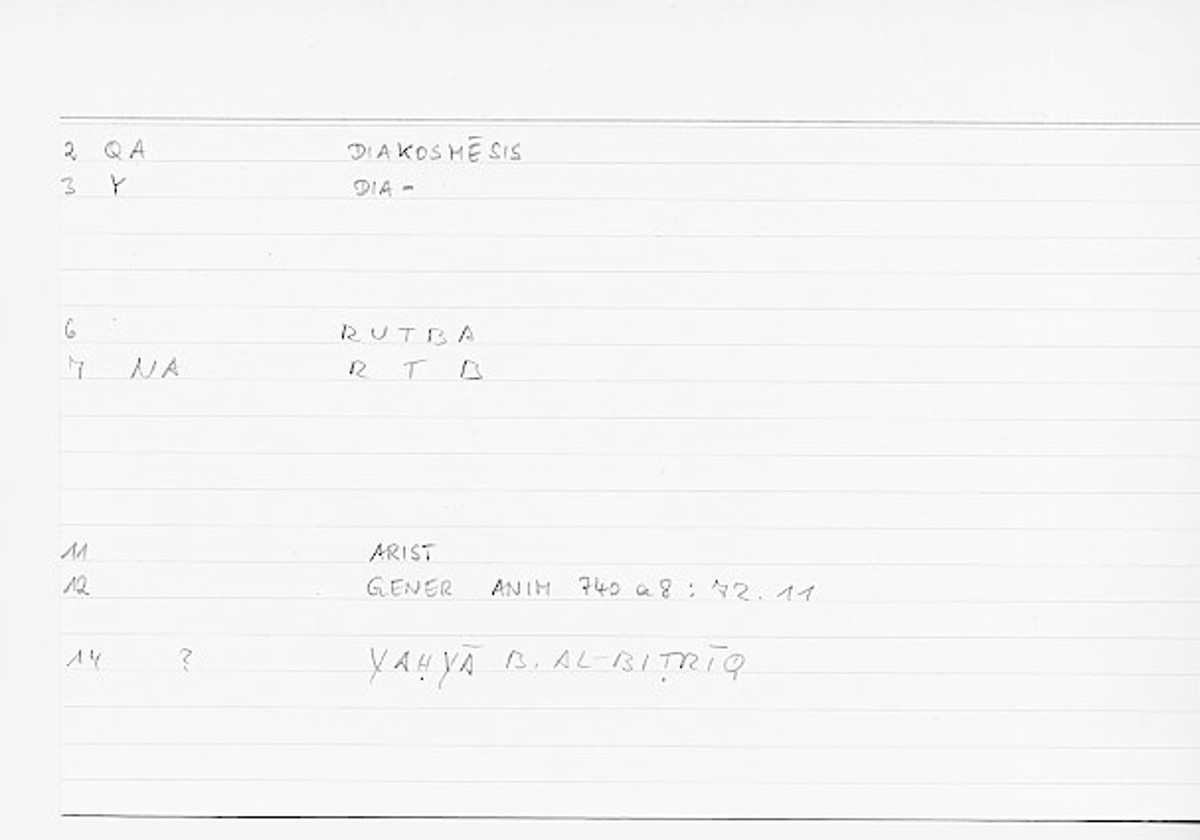 2 QA DIAKOSMĒSIS
3 Y DIA-
6 RUTBA
7 NA R T B
11 ARIST
12 GENER ANIM 740 a 8 : 72. 11
14 ? YAḤYĀ B. AL-BIṬRĪQ